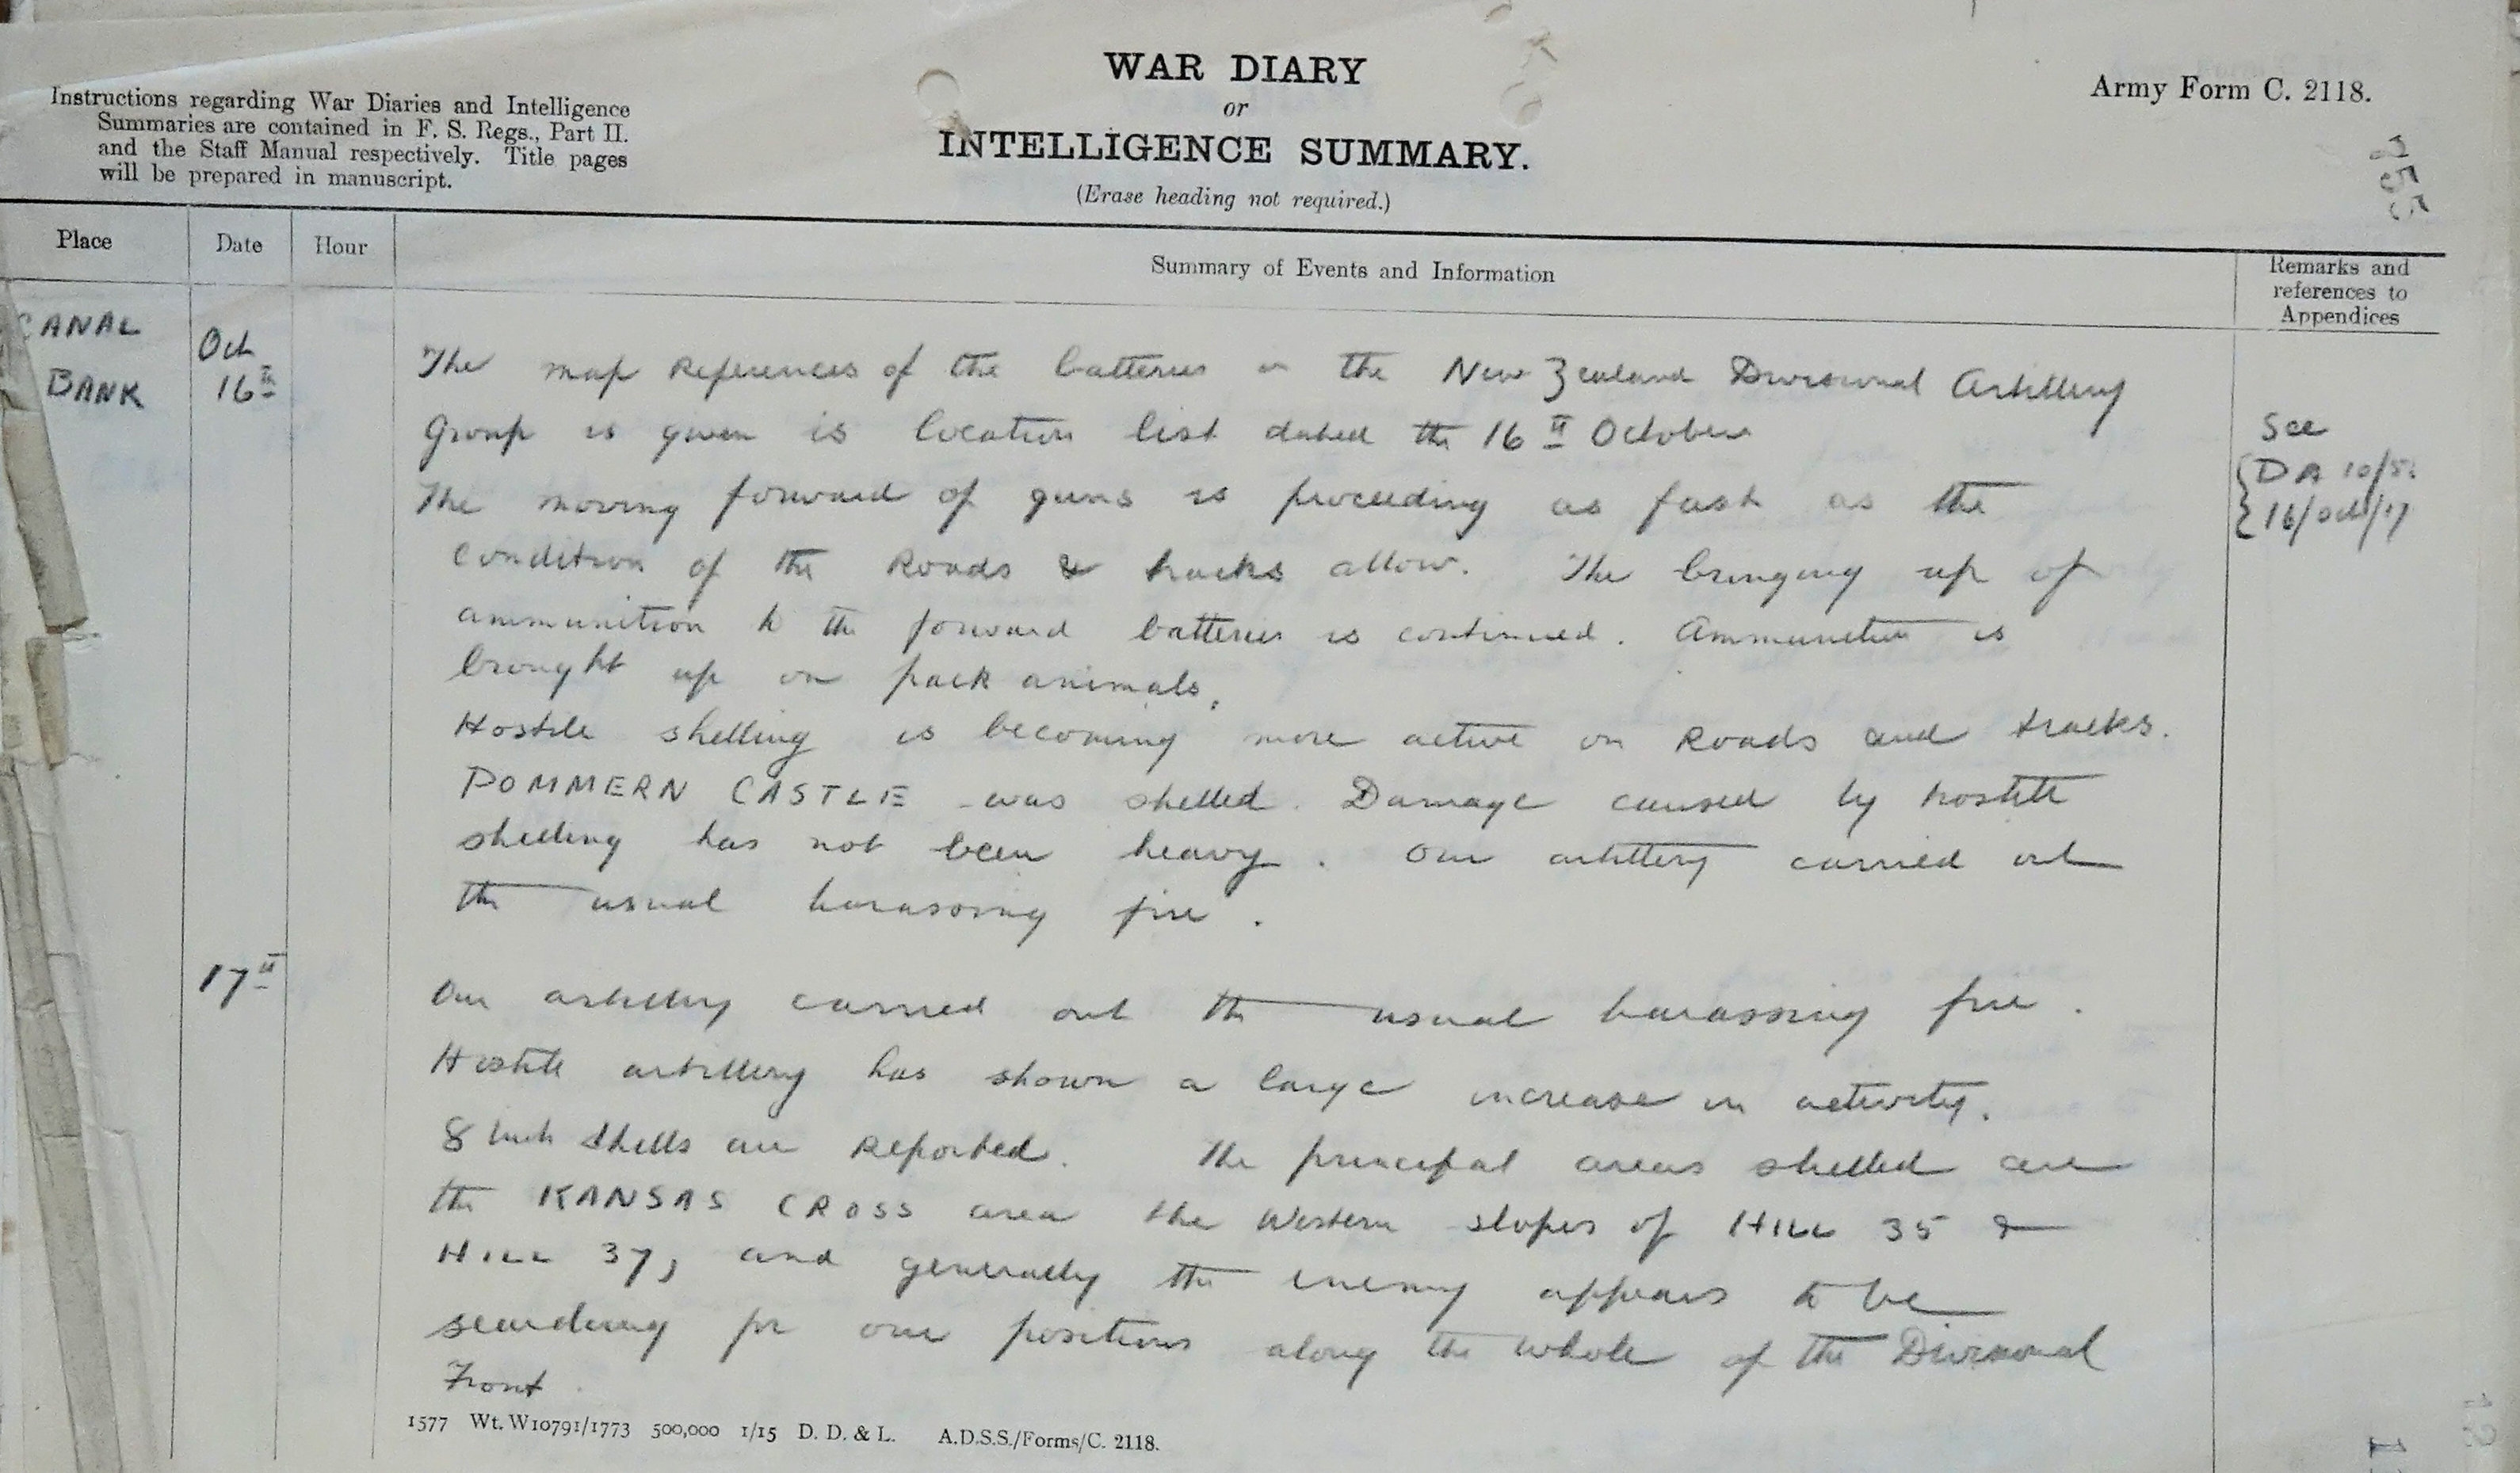 WAR DIARY
or
INTELLIGENCE SUMMARY.
(Erase heading not required.)
Instructions regarding War Diaries and Intelligence
Summaries are contained in F. S. Regs., Part II.
and the Staff Manual respectively. Title pages
will be prepared in manuscript.
Army Form C. 2118.
255
Place
Date
Hour
Summary of Events and Information
Remarks and
references to
Appendices
CANAL
BANK
Oct
16th
The map References of the batteries in the New Zealand Divisional Artillery
Group is given is location list dated the 16th October
See
DA 10/5
16/Oct/17
The moving forward of guns is proceeding as fast as the
condition of the Roads & tracks allow. The bringing up of
ammunition to the forward batteries is continued. Ammunition is
brought up on pack animals.
Hostile shelling is becoming more active on Roads and tracks.
POMMERN CASTLE was shelled. Damage caused by hostile
shelling has not been heavy. Our artillery carried out
the usual harassing fire.
17th
Our artillery carried out the usual harassing fire.
Hostile artillery has shown a large increase in activity.
8 inch shells are Reported. The principal areas shelled are
the KANSAS CROSS area the Western slopes of HILL 35 &
HILL 37, and generally the enemy appears to be
searching for our positions along the whole of the Divisional
Front.
1577 Wt. W10791/1773 500,000 1/15 D. D. & L. A.D.S.S./Forms/C. 2118.